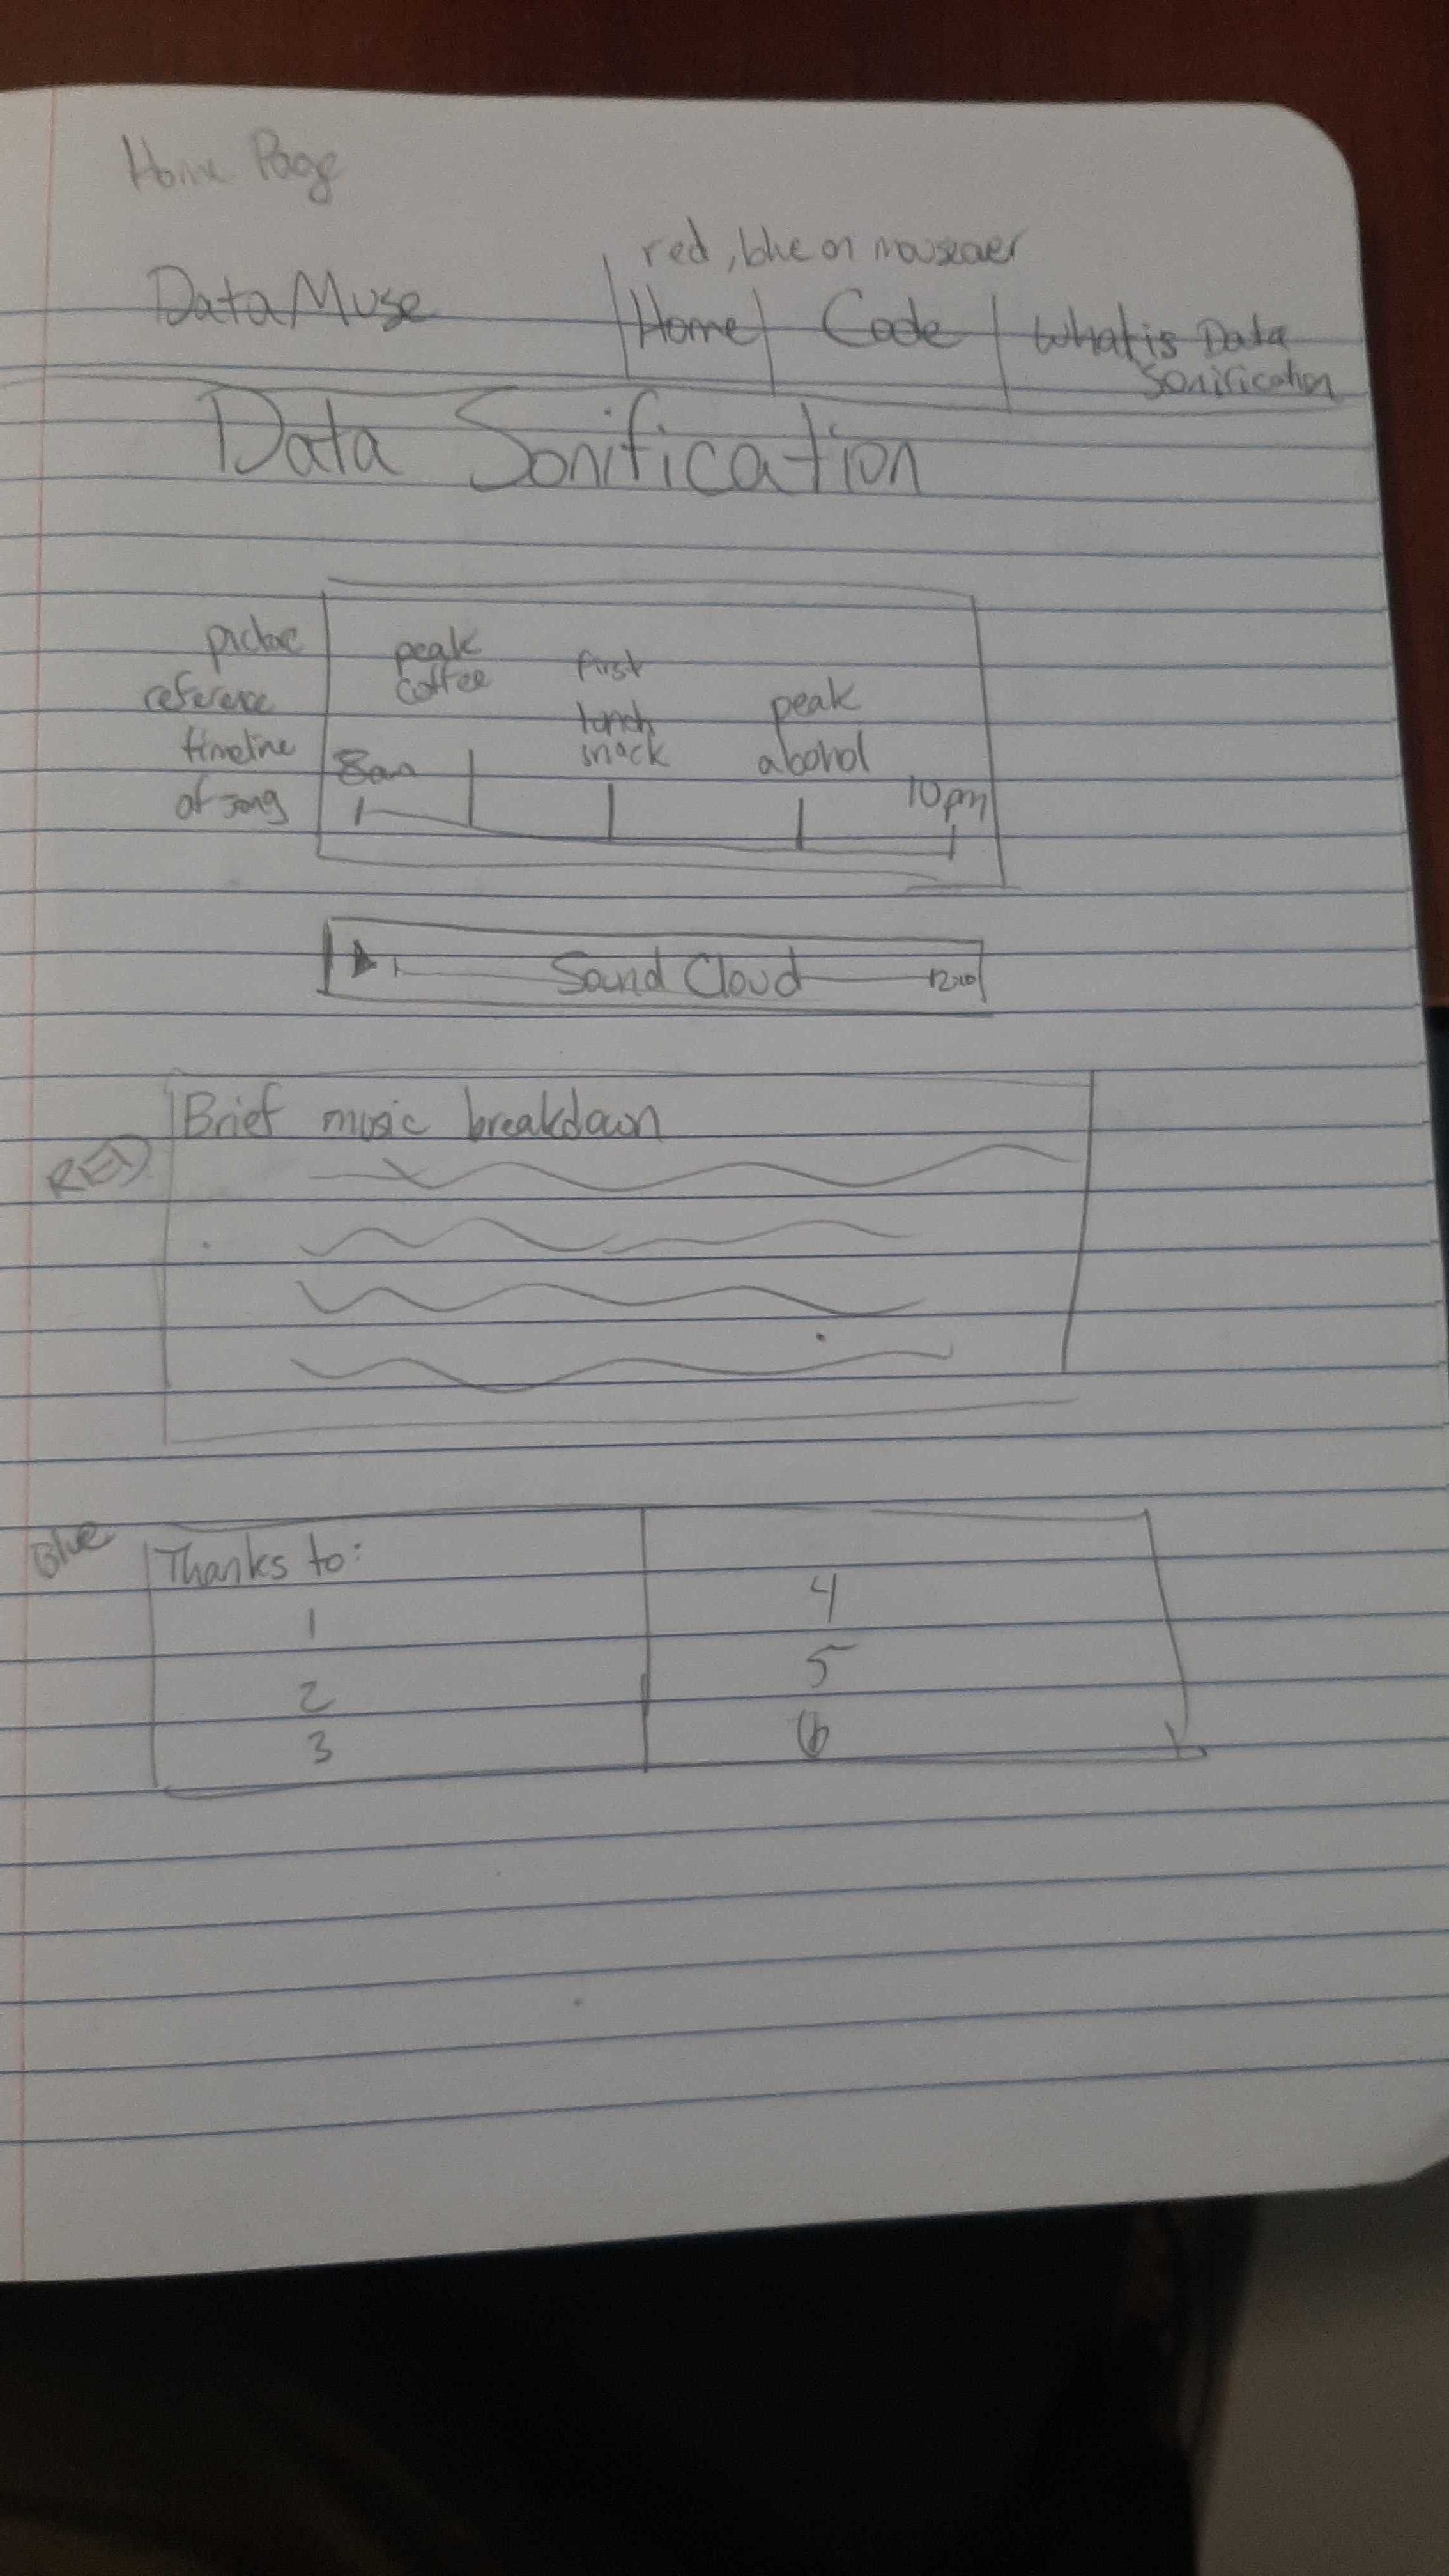 Home Page
red, blue on mouseover
DataMuse
Home
Code
What is Data
Sonification
Data Sonification
picture
reference
timeline
of song
peak
coffee
first
lunch
snack
peak
alcohol
8am
10pm
Sound Cloud
Brief music breakdown
RED
Blue
Thanks to:
1
2
3
4
5
6